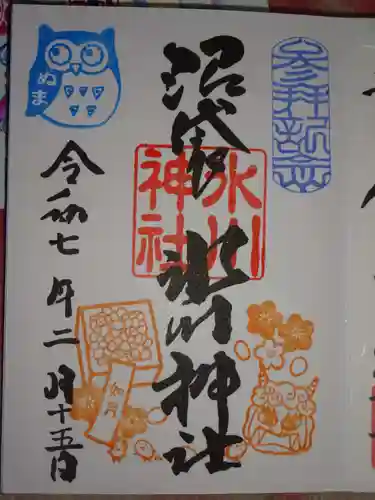 参拝記念
沼袋 氷川神社
氷川
神社
ぬま
令和七年二月十五日
如月